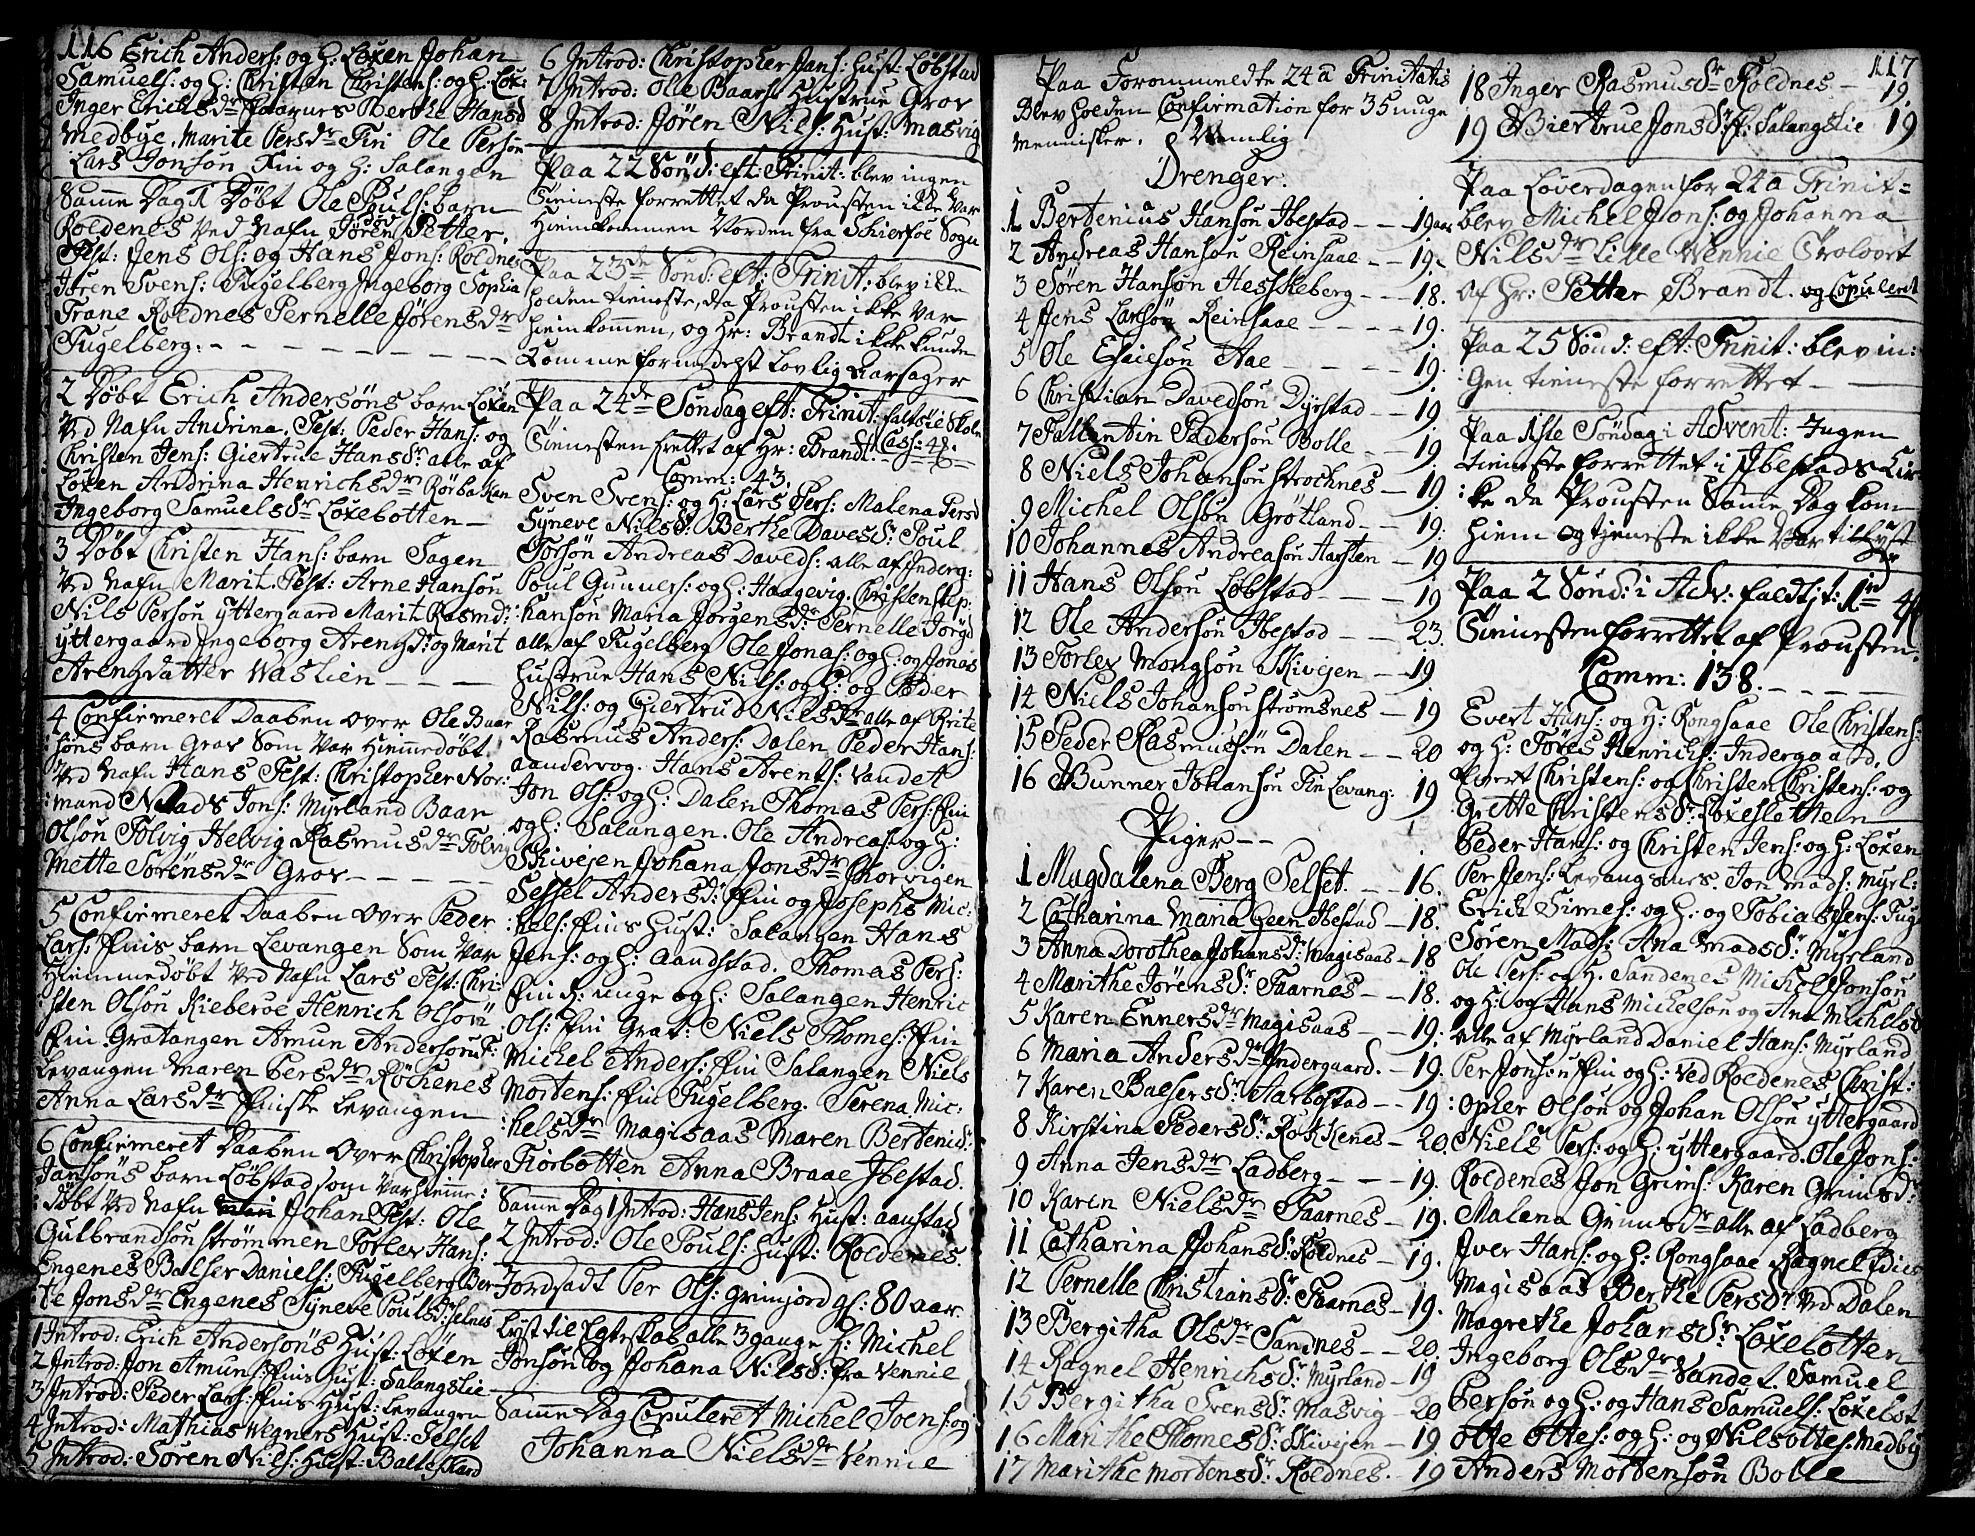 116 Erich Anders: og H: Loxen Johan
Samuels: og H: Christen Christens: og H: Lox:
Inger Erichsdr Faarnes Berthe Hansd
Medbye. Marite Persdr Fin Ole Persøn
Lars Jonsøn Fin og H: Salangen
Samme Dag 1 Døbt Ole Pouls: barn
Roldenes Ved Nafn Jøren Petter.
Test: Jens Ols: og Hans Jons: Roldnes
Jøren Svens: Fugelberg Ingeborg Sophia
Trane Roldnes Pernelle Jørensdr
Fugelberg.
2 Døbt Erich Andersøns barn Loxen
Ved Nafn Andrina. Test: Peder Hans: og
Christen Jens: Giertrue Hansdr alle af
Loxen Andrina Henrichsdr Rørbakan
Ingeborg Samuelsdr Loxebotten
3 Døbt Christen Hans: barn Sagen
Ved Nafn Marit. Test: Arne Hansøn
Nils Persøn yttergaard Marit Rasmd:
yttergaard Ingeborg Arensdr og Marit
Arensdatter Waslien
4 Confirmeret Daaben over Ole Baar
søns barn Grov Som Var Hiemmedøbt.
Ved Nafn Hans Test: Christopher Nor:
mand Mads Jons: Myrland Baar
Olsøn Tolvig Helvig Rasmusdr Tolvig
Mette Sørensdr Grov
5 Confirmeret Daaben over Peder
Lars: Fins barn Levangen Som Var
Hiemmedøbt Ved Nafn Lars Test: Chri:
sten Olsøn Kieberøe Henrich Olsøn
Fin Gratangen Amun Andersøn F:
Levangen Maren Persdr Røchenes
Anna Larsdr Finske Levangen
6 Confirmeret Daaben over Christopher
Jansøns barn Løbstad som Var Heime:
døbt Ved Nafn Johan Test: Ole
Gulbrandsøn Strømmen Torlev Hans:
Engenes Balser Daniels: Fugelberg Ber:
te Jonsdr Engenes Syneve Poulsdr Selnes
1 Introd: Erich Andersøns Hust: Loxen
2 Introd: Jon Amuns: Fins Hust: Salangslie
3 Introd: Peder Lars: Fins Hust: Levangen
4 Introd: Mathias Wegners Hust: Selset
5 Introd: Søren Nils: Hust: Balteskard
6 Introd: Christopher Jans: Hust: Løbstad
7 Introd: Ole Baars: Hustrue Grov
8 Introd: Jøren Nils: Hust: Masvig
Paa 22 Sønd: eft: Trinit: blev ingen
Tieneste forrettet da Prousten ikke Var
Hiemkommen Vorden fra Schierføe Sogn
Paa 23de Sønd: eft: Trinit: blev ikke
holden tieneste, da Prousten ikke Var
hiemkommen, og Hr: Brandt ikke kunde
komme formedelst Lovlig aarsager
Paa 24de Søndag eft: Trinit:
Tienesten frettet af Hr: Brandt.
Comm: 43.
Sven Svens: og H: Lars Pers: Malena Persd
Syneve Nilsdr: Berthe Davesdr: Poul
Torsøn Andreas Daveds: alle af Inderg:
Poul Gunners: og H: Haagevig. Christen Step:
hansøn Maria Jørgensdr Pernelle Jørgd
alle af Fugelberg Ole Jonas: og H: og Jonas
hustrue Hans Nils: og H: og Peder
Nils: og Giertrud Nilsdr alle af
Rasmus Anders: Dalen Peder Hans:
aandervog. Hans Arents: Vandet
Jon Ols: og H: Dalen Thomas Pers: Fin
og H: Salangen. Ole Andreas: og H:
Skivejen Johana Jonsdr Schorvigen
Sessel Andersdr: Fin og Josephs Mic:
hels: Fins Hust: Salangen Hans
Jens: og H: Aandstad. Thomas Pers:
Fin d: unge og H: Salangen Henric
Ols: Fin Grat: Niels Thomes: Fin
Michel Anders: Fin Salangen Niels
Mortens: Fin Fugelberg. Serena Mic:
helsdr Magisaas Maren Bertenid:
Fiorbotten Anna Braae Ibestad.
Samme Dag 1 Introd: Hans Jens: Hust: aanstad
2 Introd: Ole Pouls: Hust: Roldenes.
Jordsadt Per Ols: Grimjord gl: 80 aar.
Lyst til Egteskab alle 3 gange H: Michel
Jonsøn og Johana Nilsd: fra Vennie
Samme Dag Copuleret Michel Joens: og
Johanna Nielsdr Vennie
Paa Forommeldte 24a Trinitatis
Blev holden Confirmation for 35 unge
Mennisker. Nemlig
Drenger.
1 Bertenius Hansøn Ibestad 19 aar
2 Andreas Hansøn Reinsaae 19.
3 Søren Hansøn Hesskeberg 18.
4 Jens Larsøn Reinsaae 19.
5 Ole Esaiesøn Aae 19.
6 Christian Davedsøn Dyrstad 19
7 Fallentin Pedersøn Bolle 19
8 Niels Johansøn Strochnes 19
9 Michel Olsøn Grøtland 19.
10 Johannes Andreasøn Harsten 19
11 Hans Olsøn Løbstad 19
12 Ole Andersøn Ibestad 23.
13 Torlev Mongsøn Skivejen 19
14 Niels Johansøn Strømsnes 19
15 Peder Rasmusøn Dalen 20
16 Gunner Johansøn Fin Levang: 19
Piger
1 Magdalena Berg Selset. 16.
2 Catharina Maria Geen Ibestad 18.
3 Anna Dorothea Johansdr: Magisaas 18
4 Marithe Jørensdr: Faarnes 18.
5 Karen Ennersdr Magisaas 19.
6 Maria Andersdr Indergaard. 19.
7 Karen Balsersdr Aarbostad 19
8 Kirstina Pedersdr: Rokkenes 20.
9 Anna Jensdr Ladberg 19.
10 Karen Nielsdr Faarnes 19.
11 Catharina Johansdr: Roldnes 19.
12 Pernelle Christiansdr: Faarnes 19.
13 Bergitha Olsdr Sandnes 20.
14 Ragnel Henrichsdr: Myrland 19
15 Bergitha Svensdr: Masvig 20
16 Marithe Thomesdr: Skivejen 19.
17 Marithe Mortensdr: Roldnes. 19
117
18 Inger Rasmusdr Roldnes 19.
19 Giertrue Jonsdr: F: Salangslie 19
Paa Løverdagen for 24a Trinit=
blev Michel Jons: og Johanna
Nilsdr Lille Wennie Trolovet
af Hr: Petter Brandt. og Copuleret
Paa 25 Sønd: eft: Trinit: blev in:
gen tieneste forrettet
Paa 1ste Søndag i Advent: Ingen
tieneste forrettet i Ibestads Kir
ke da Prousten Samme Dag kom
hiem og tjeneste ikke Var tillyst
Paa 2 Sønd: i Adv: faldt
Tienesten forrettet af Prousten.
Comm: 138.
Evert Hans: og H: Rongsaae Ole Christens:
og H: Tøres Henrichs: Indergaard,
Christens: og Christen Christens: og
Grette Christensdr: Loxesletten
Peder Hans: og Christen Jens: og H: Loxen
Per Jens: Levangsnes. Jon Mads: Myrl:
Erich Simes: og H: og Tobias Jens: Fug
Søren Mads: Ana Madsdr: Myrland
Ole Pers: og H: Sandenes Michel Jonsøn
og H: og Hans Michelsøn og Ane Michelsd
alle af Myrland Daniel Hans: Myrland
Per Jonsøn Fin og H: Ved Roldenes Christ:
opher Olsøn og Johan Olsøn yttergaard
Niels Pers: og H: yttergaard. Ole Jons:
Roldenes Jon Grims: Karen Grimsd:
Malena Grimsdr alle af Ladberg
Iver Hans: og H: Rongsaae Ragnel
Magisaas Berthe Persdr Ved Dalen
Magrethe Johansdr: Loxebotten
Ingeborg Olsdr Vandet. Samuel
Persøn og H: og Hans Samuels: Loxebot
Otte Ottes: og H: og Nils Ottes: Medby
Anders Mortensøn Bolle